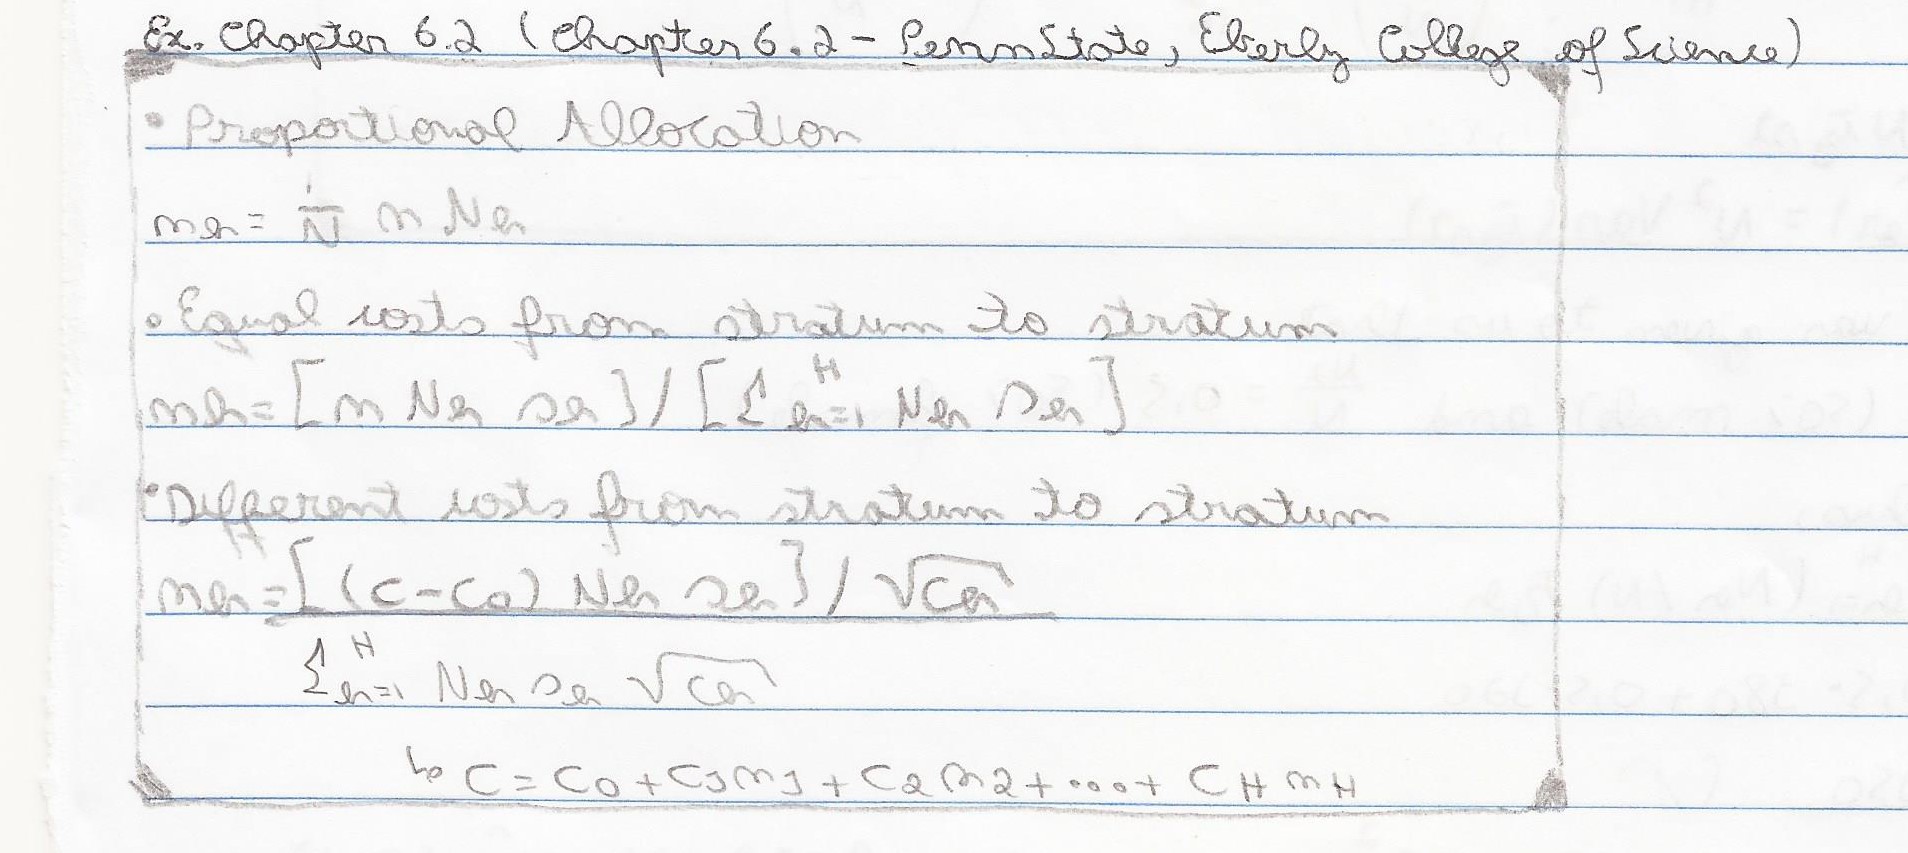 Ex. Chapter 6.2 (Chapter 6.2 - PennState, Eberly College of Science)
• Proportional Allocation
nh = 1/N n Nh
• Equal costs from stratum to stratum
nh = [n Nh sh] / [Σ h=1 H Nh sh]
• Different costs from stratum to stratum
nh = [(c - c0) Nh sh] / √ch
Σ h=1 H Nh sh √ch
↳ C = C0 + C1n1 + C2n2 + ... + CH nH